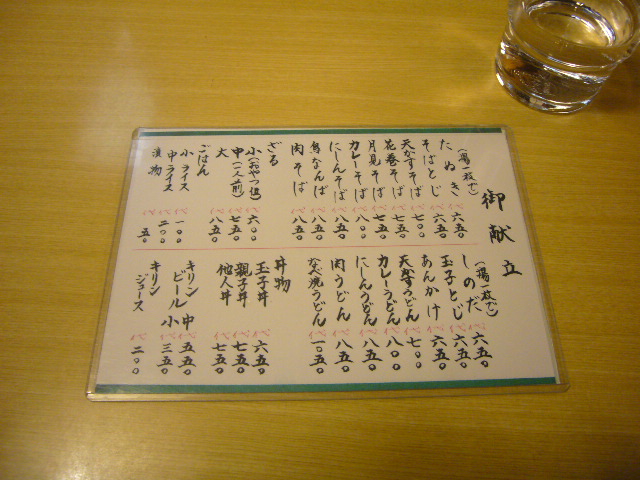 御献立
(揚一枚で)
たぬき 六五〇
そばとじ 六五〇
天かすそば 七〇〇
花巻そば 七五〇
月見そば 七五〇
カレーそば 八〇〇
にしんそば 八五〇
鳥なんば 八五〇
肉そば 八五〇
ざる
小(おやつ程) 六〇〇
中(一人前) 七五〇
大 八五〇
ごはん
小ライス 一〇〇
中ライス 二〇〇
漬物 五〇
(揚一枚で)
しのだ 六五〇
玉子とじ 六五〇
あんかけ 六五〇
天かすうどん 七〇〇
カレーうどん 八〇〇
にしんうどん 八五〇
肉うどん 八五〇
なべ焼うどん 一〇五〇
丼物
玉子丼 六五〇
親子丼 七五〇
他人丼 七五〇
キリンビール
中 五五〇
小 三五〇
キリンジュース 二〇〇